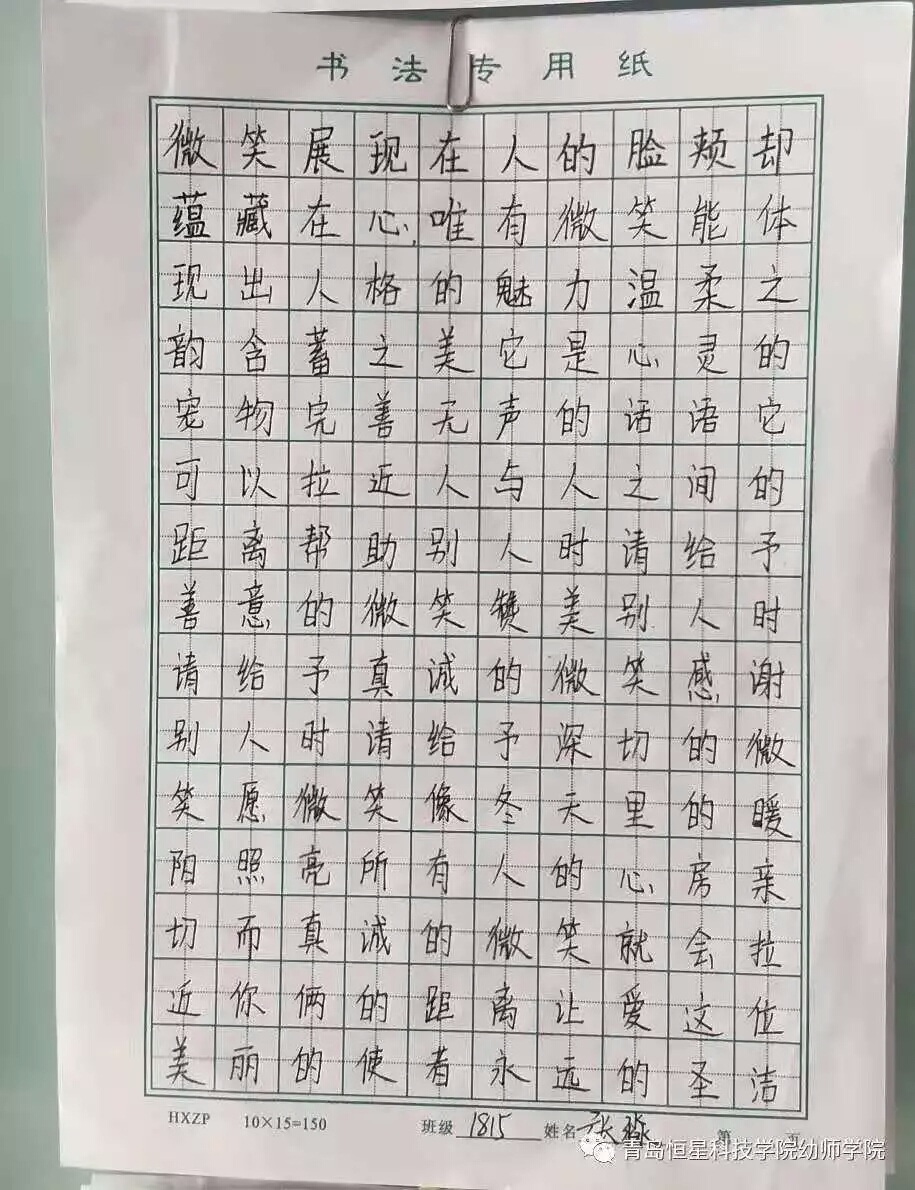 书法专用纸
微笑展现在人的脸颊却
蕴藏在心唯有微笑能体
现出人格的魅力温柔之
韵含蓄之美它是心灵的
宠物完善无声的话语它
可以拉近人与人之间的
距离帮助别人时请给予
善意的微笑赞美别人时
请给予真诚的微笑感谢
别人时请给予深切的微
笑愿微笑像冬天里的暖
阳照亮所有人的心房亲
切而真诚的微笑就会拉
近你俩的距离让爱这位
美丽的使者永远的圣洁
HXZP 10×15=150 班级 1815 姓名 张 第 页
青岛恒星科技学院幼师学院